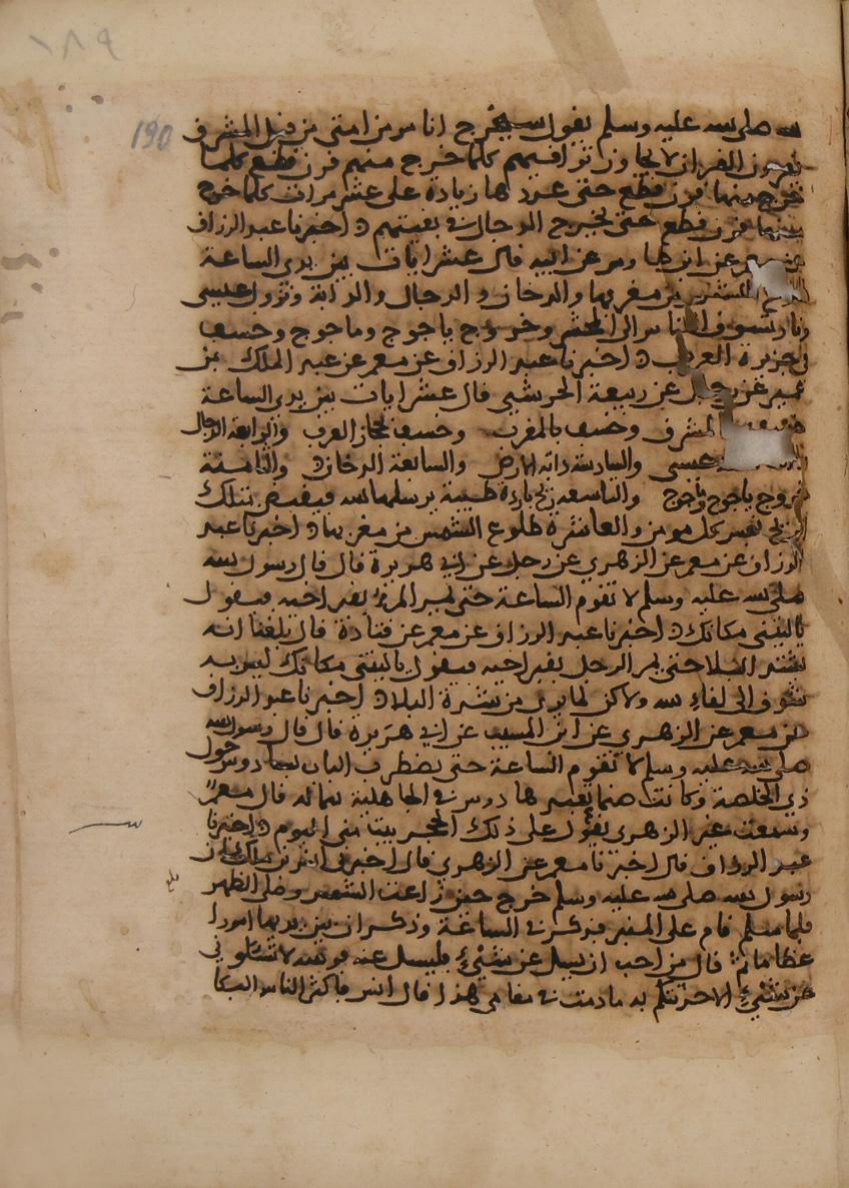 ١٨٩
190
الله صلى الله عليه وسلم يقول سيخرج اناس من امتي من قبل المشرق
يقرءون القران لا يجاوز تراقيهم كلما خرج منهم قرن قطع كلما
خرج منها قرن قطع حتى عددها زيادة على عشر مرات كلما خرج
منهم قرن قطع حتى يخرج الدجال في بقيتهم اخبرنا عبد الرزاق
عن معمر عن ابن طاوس عن ابيه قال عشر ايات بين يدي الساعة
الشمس من مغربها والدخان والدجال والدابة ونزول عيسى
ونار تسوق الناس الى المحشر وخروج ياجوج وماجوج وخسف
في جزيرة العرب اخبرنا عبد الرزاق عن معمر عن عبد الملك بن
عمير عن رجل عن ربيعة الجرشي قال عشر ايات بين يدي الساعة
المشرق وخسف بالمغرب وخسف بحجاز العرب والرابعة الدجال
عيسى والسادسة دابة الارض والسابعة الدخان والثامنة
خروج ياجوج وماجوج والتاسعة ريح باردة طيبة يرسلها الله فيقبض بتلك
الريح نفس كل مومن والعاشرة طلوع الشمس من مغربها اخبرنا عبد
الرزاق عن معمر عن الزهري عن رجل عن ابي هريرة قال قال رسول الله
صلى الله عليه وسلم لا تقوم الساعة حتى يمر المرء بقبر اخيه فيقول
يا ليتني مكانك اخبرنا عبد الرزاق عن معمر عن قتادة قال بلغنا انه
يشتد البلا حتى يمر الرجل بقبر اخيه فيقول يا ليتني مكانك ليس به
شوق الى لقاء الله ولاكن لما يرى من شدة البلاء اخبرنا عبد الرزاق
عن معمر عن الزهري عن ابن المسيب عن ابي هريرة قال قال رسول الله
صلى الله عليه وسلم لا تقوم الساعة حتى تضطرب اليات نساء دوس حول
ذي الخلصة وكانت صنما تعبدها دوس في الجاهلية بتبالة قال معمر
وسمعت غير الزهري يقول على ذلك الحجر بيت مبني اليوم اخبرنا
عبد الرزاق قال اخبرنا معمر عن الزهري قال اخبرني انس بن ملك ان
رسول الله صلى الله عليه وسلم خرج حين زاغت الشمس وصلى الظهر
فلما سلم قام على المنبر فذكر في الساعة وذكر ان بين يديها امورا
عظاما ثم قال من احب ان يسل عن شيء فليسل عنه فوالله لا تسلوني
عن شيء الا حدثتكم به ما دمت في مقامي هذا قال انس فاكثر الناس البكا